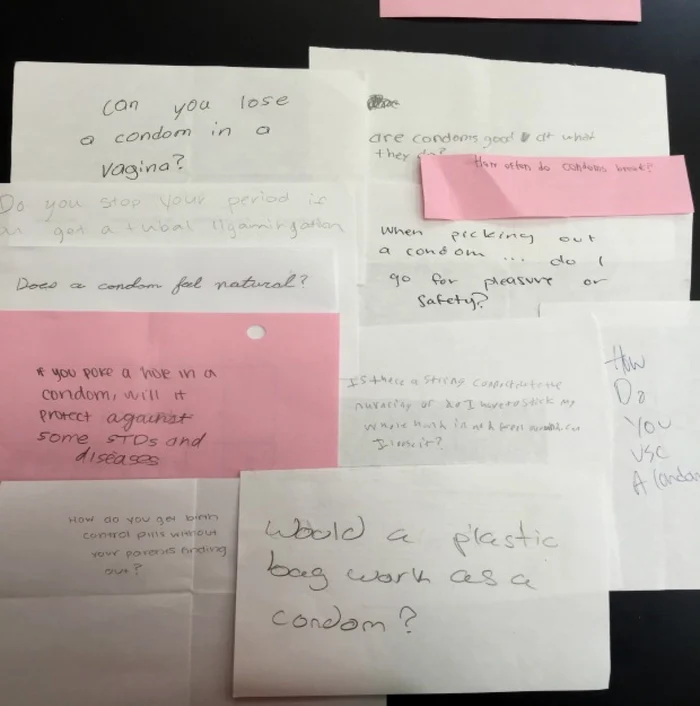 can you lose
a condom in a
vagina?
are condoms good at what
they do?
How often do condoms break?
Do you stop your period if
got a tubal ligamingation
When picking out
a condom ... do I
go for pleasure or
safety?
Does a condom feel natural?
If you poke a hole in a
condom, will it
protect against
some STDs and
diseases
Is there a strong
or do I have to stick my
whole in
I lose it?
How
Do
You
USE
A Condom
How do you get birth
control pills without
your parents finding
out?
Would a plastic
bag work as a
condom?